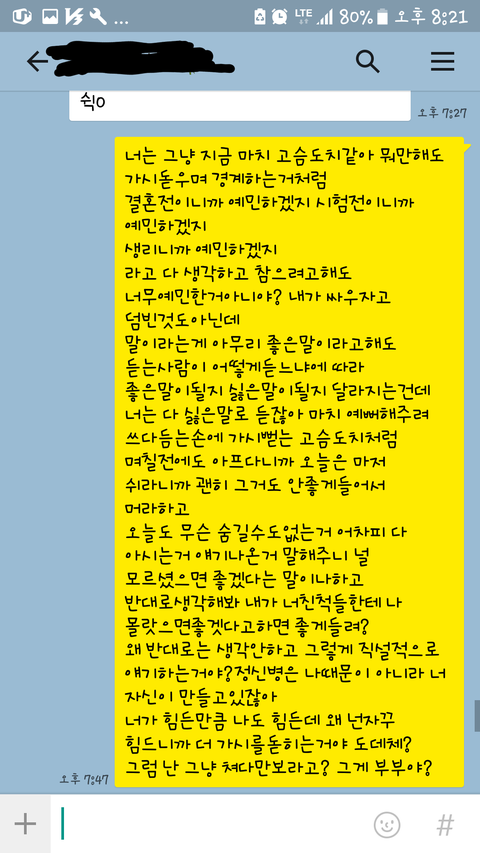 LTE 80% 오후 8:21
쉭o
오후 7:27
너는 그냥 지금 마치 고슴도치같아 뭐만해도
가시돋우며 경계하는거처럼
결혼전이니까 예민하겠지 시험전이니까
예민하겠지
생리니까 예민하겠지
라고 다 생각하고 참으려고해도
너무예민한거아니야? 내가 싸우자고
덤빈것도아닌데
말이라는게 아무리 좋은말이라고해도
듣는사람이 어떻게듣느냐에 따라
좋은말이될지 싫은말이될지 달라지는건데
너는 다 싫은말로 듣잖아 마치 예뻐해주려
쓰다듬는손에 가시뻗는 고슴도치처럼
며칠전에도 아프다니까 오늘은 마저
쉬라니까 괜히 그거도 안좋게들어서
머라하고
오늘도 무슨 숨길수도없는거 어차피 다
아시는거 얘기나온거 말해주니 널
모르셨으면 좋겠다는 말이나하고
반대로생각해봐 내가 너친척들한테 나
몰랏으면좋겟다고하면 좋게들려?
왜 반대로는 생각안하고 그렇게 직설적으로
얘기하는거야?정신병은 나때문이 아니라 너
자신이 만들고있잖아
너가 힘든만큼 나도 힘든데 왜 넌자꾸
힘드니까 더 가시를돋히는거야 도데체?
그럼 난 그냥 쳐다만보라고? 그게 부부야?
오후 7:47
+ #